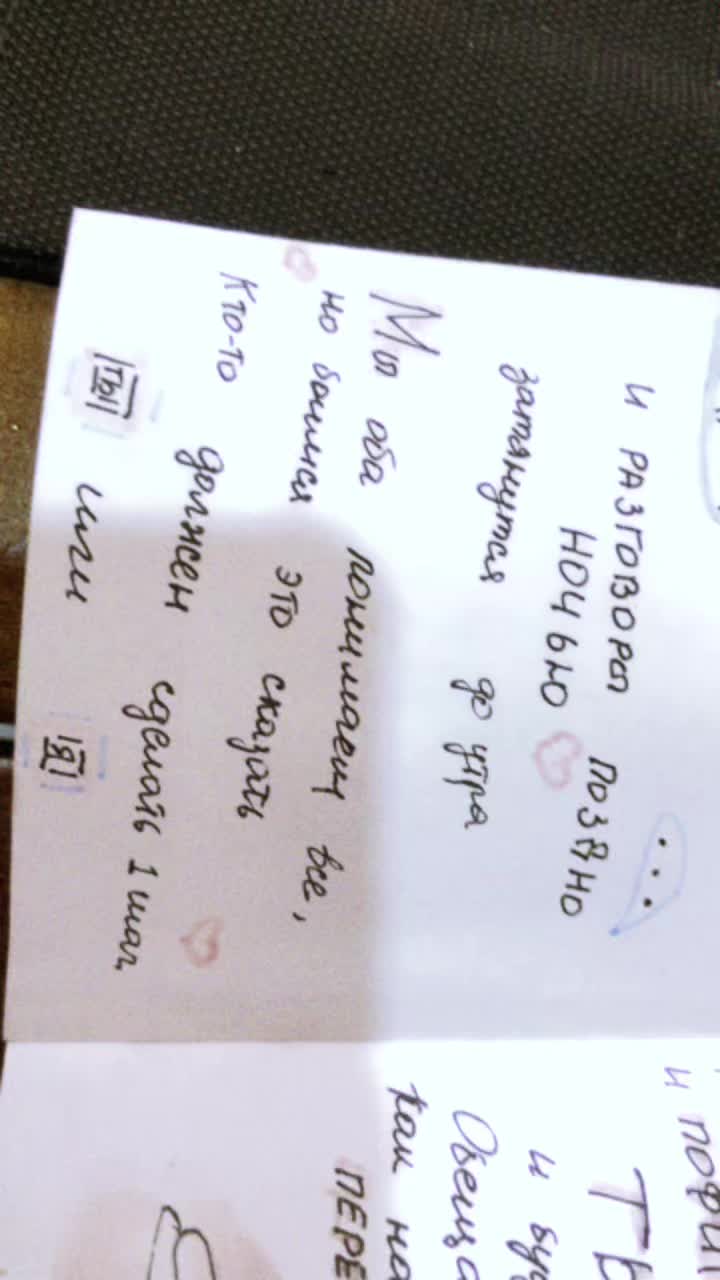 И РАЗГОВОРЫ ПОЗДНО
НОЧЬЮ
затянутся до утра
Мы оба понимаем все,
но боимся это сказать
Кто-то должен сделать 1 шаг
ты или я
и
и
Обеща
как на
ПЕРЕ